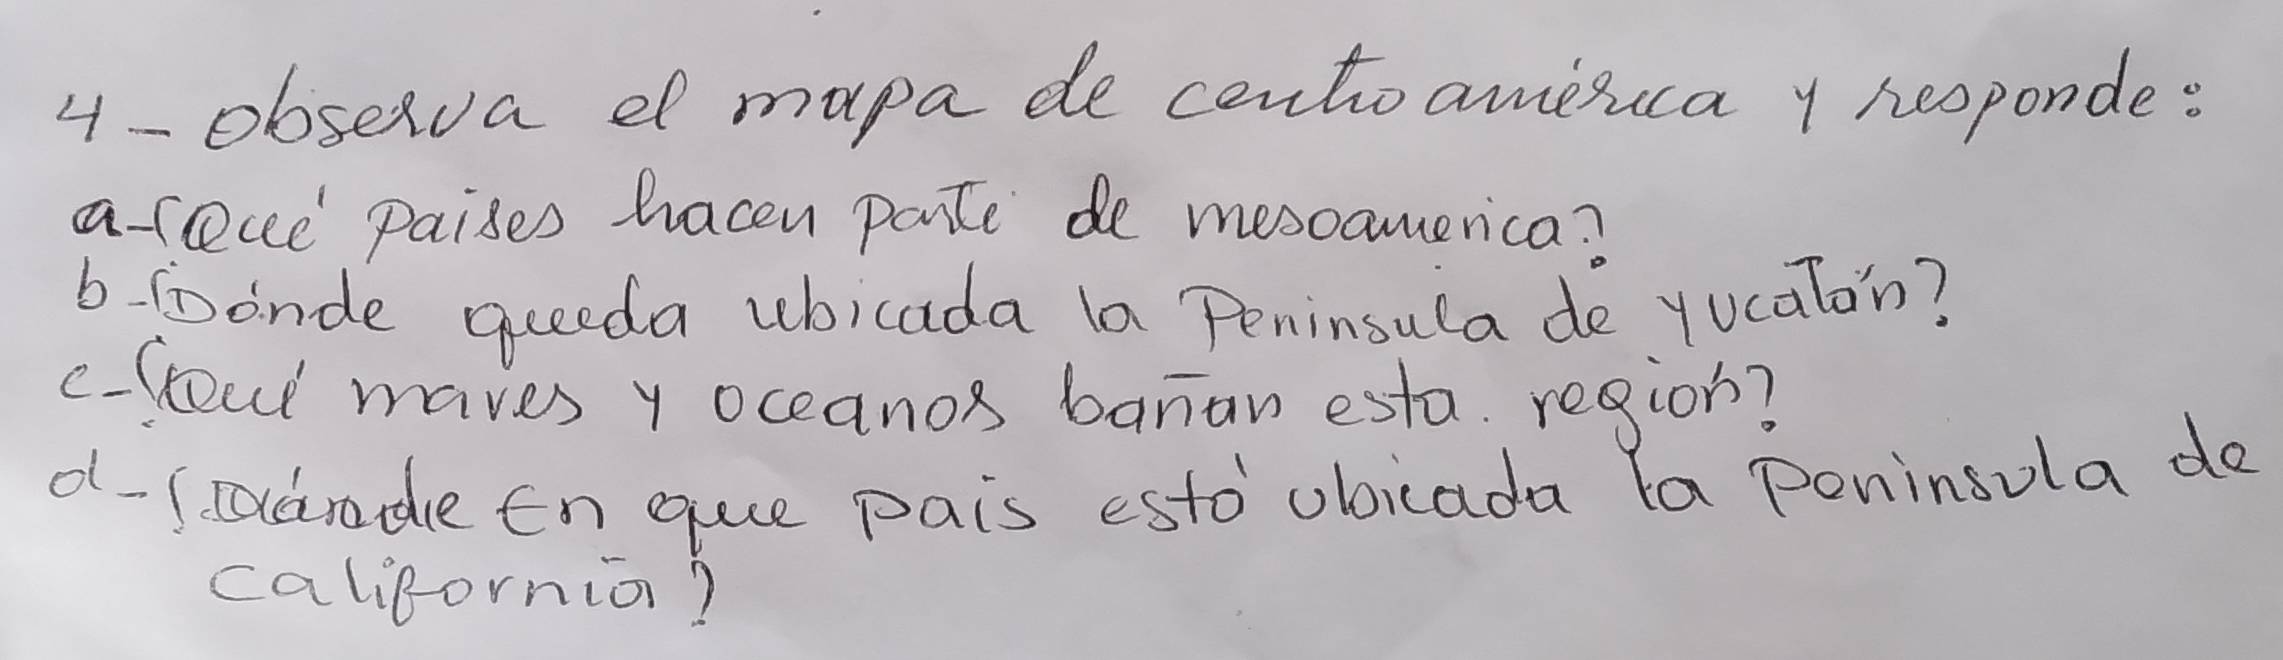 4- observa el mapa de centroamérica y responde:
a-¿Qué paises hacen parte de mesoamerica?
b-¿Dónde queda ubicada la Peninsula de yucatán?
c-¿Qué mares y oceanos bañan esta. región?
d-¿ En que pais está ubicada la Peninsula de
california?